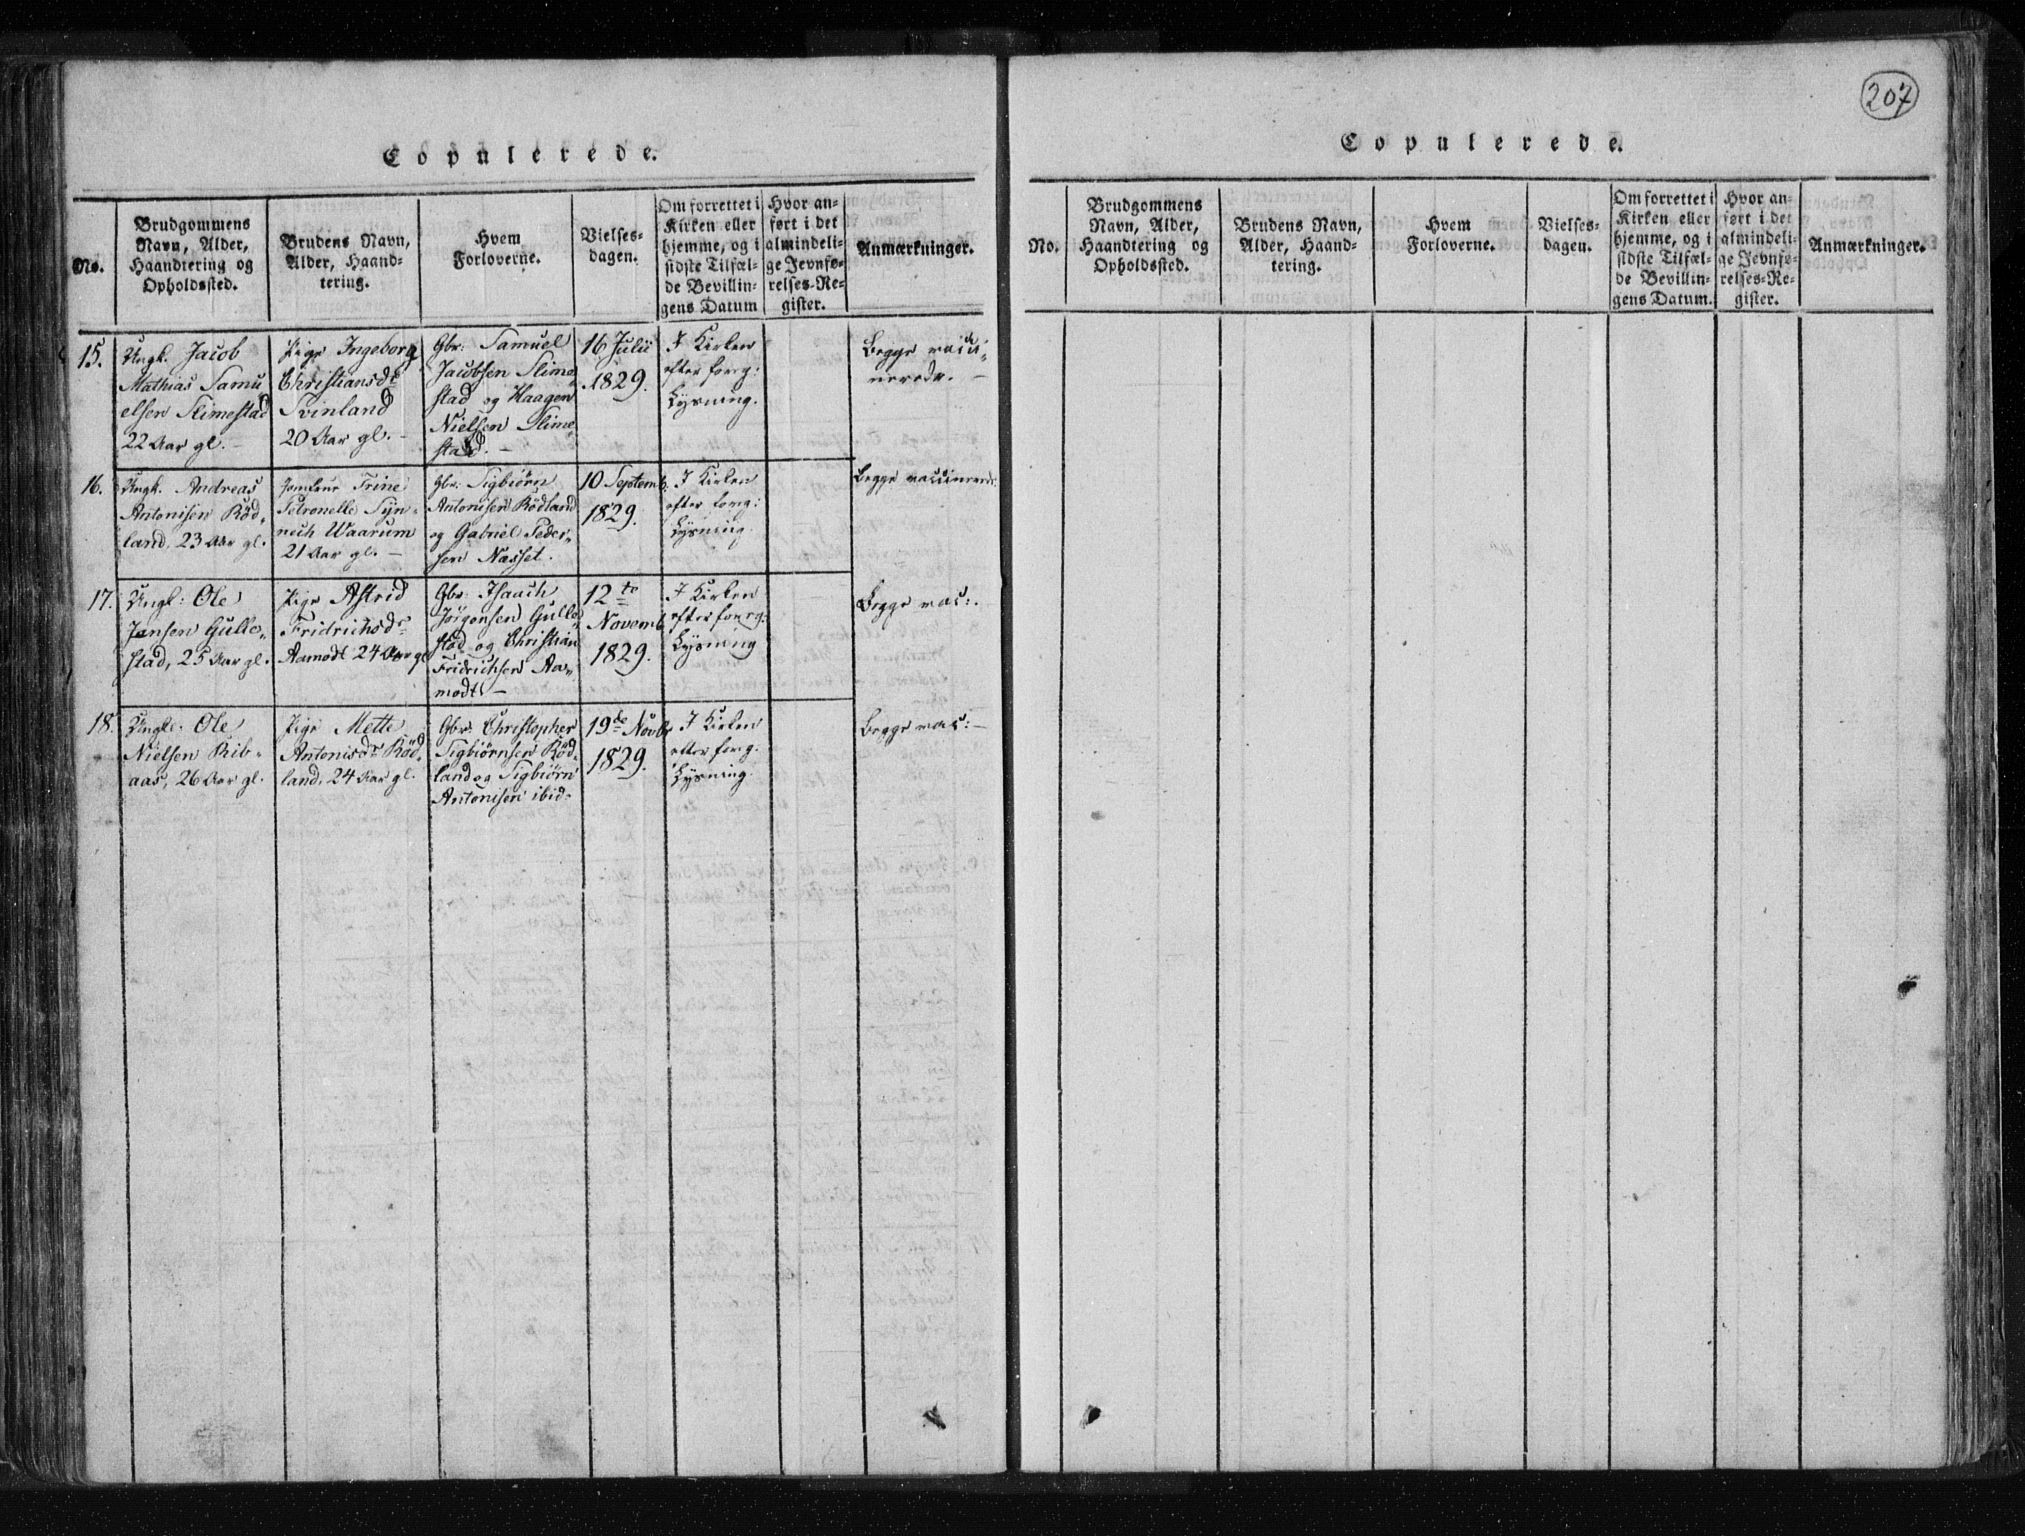 Copulerede.
No.
Brudgommens
Navn, Alder,
Haandtering og
Opholdssted.
Brudens Navn,
Alder, Haand-
tering.
Hvem
Forloverne.
Vielses-
dagen.
Om forrettet i
Kirken eller
hjemme, og i
sidste Tilfæl-
de Bevillin-
gens Datum
Hvor an-
ført i det
almindeli-
ge Jevnfø-
relses-Re-
gister.
Anmærkninger.
15.
Ungk. Jacob
Mathias Samu
elsen Slimestad
22 Aar gl. -
Pige Ingeborg
Christiansdr
Svinland
20 Aar gl. -
Gbr: Samuel
Jacobsen Slime-
stad og Haagen
Nielsen Slime
stad. -
16 Julii
1829.
I Kirken
efter foreg:
Lysning.
Begge vacci-
nerede. -
16.
Ungk. Andreas
Antonisen Röd-
land, 23 Aar gl.
Jomfrue Trine
Petronelle Syn-
nech Waarum
21 Aar gl. -
Gbr: Sigbiörn
Antonisen Rödland
og Gabriel Peder-
sen Næsset.
10 Septemb.
1829.
I Kirken
efter foreg:
Lysning.
Begge vaccinerede.
17.
Ungk: Ole
Jansen Gulle-
stad, 25 Aar gl.
Pige Astrid
Fridrichsdr
Aamodt 24 Aar gl
Gbr: Isaach
Jørgensen Gulle-
stad og Christian
Fridrichsen Aa-
modt -
12te
Novemb.
1829.
I Kirken
efter foreg:
Lysning
Begge vac:.
18.
Ungk: Ole
Nielsen Rib-
aas, 26 Aar gl.
Pige Mette
Antonisdr Röd-
land, 24 Aar gl.
Gbr: Christopher
Sigbiörnsen Röd-
land og Sigbiörn
Antonisen ibid.
19de Novbr
1829.
I Kirken
efter foreg.
Lysning.
Begge vac: -
207
Copulerede.
No.
Brudgommens
Navn, Alder,
Haandtering og
Opholdssted.
Brudens Navn,
Alder, Haand-
tering.
Hvem
Forloverne.
Vielses-
dagen.
Om forrettet i
Kirken eller
hjemme, og i
sidste Tilfæl-
de Bevillin-
gens Datum.
Hvor an-
ført i det
almindeli-
ge Jevnfø-
relses-Re-
gister.
Anmærkninger.